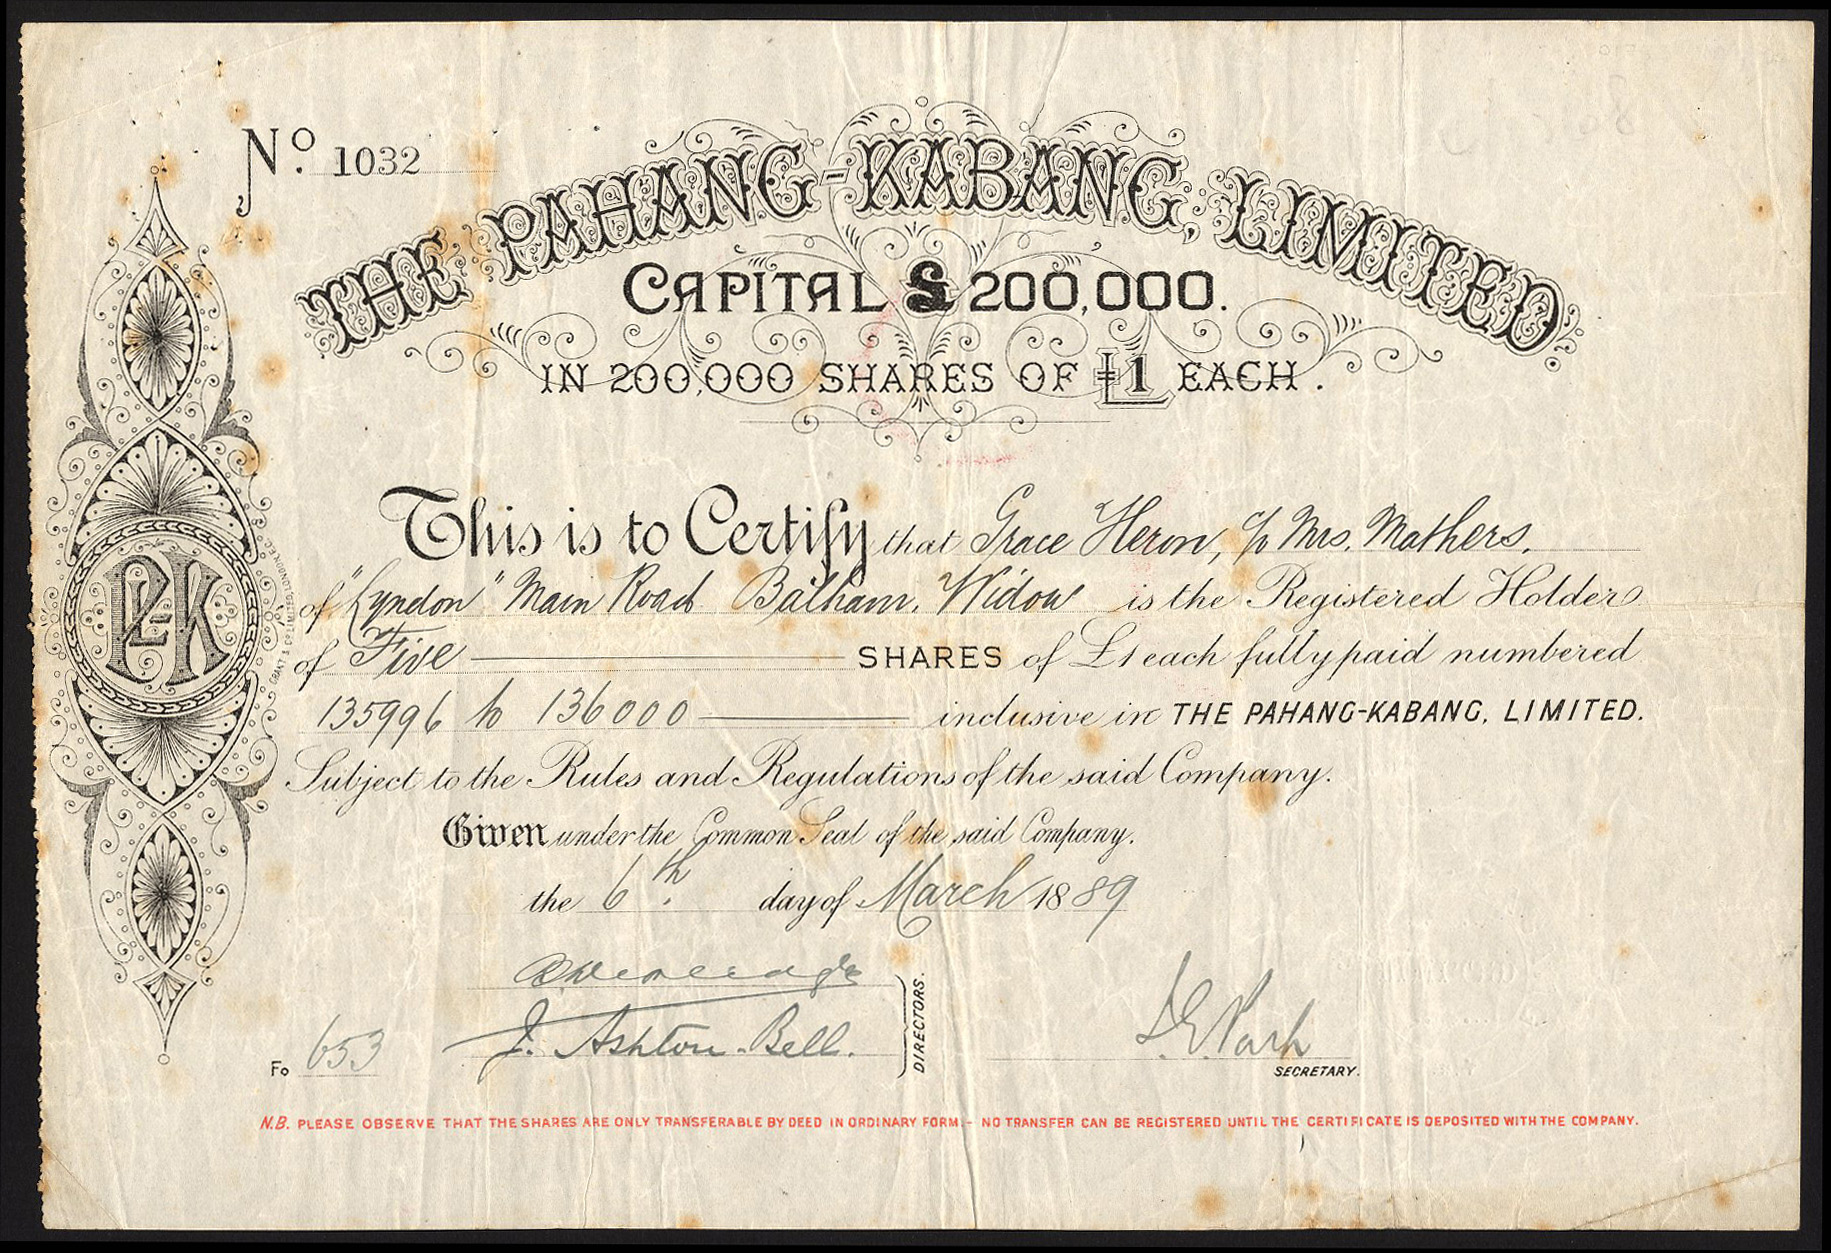 No. 1032
THE PAHANG-KABANG, LIMITED.
CAPITAL £200,000.
IN 200,000 SHARES OF £1 EACH.
This is to Certify that Grace Heron, c/o Mrs. Mathers.
of "Lyndon" Main Road Balham. Widow is the Registered Holder
of Five SHARES of £1 each fully paid numbered
135996 to 136000 inclusive in THE PAHANG-KABANG, LIMITED.
Subject to the Rules and Regulations of the said Company.
Given under the Common Seal of the said Company.
the 6th. day of March 1889
J. Ashton-Bell.
DIRECTORS.
Fo 653
SECRETARY.
N.B. PLEASE OBSERVE THAT THE SHARES ARE ONLY TRANSFERABLE BY DEED IN ORDINARY FORM.- NO TRANSFER CAN BE REGISTERED UNTIL THE CERTIFICATE IS DEPOSITED WITH THE COMPANY.
PK